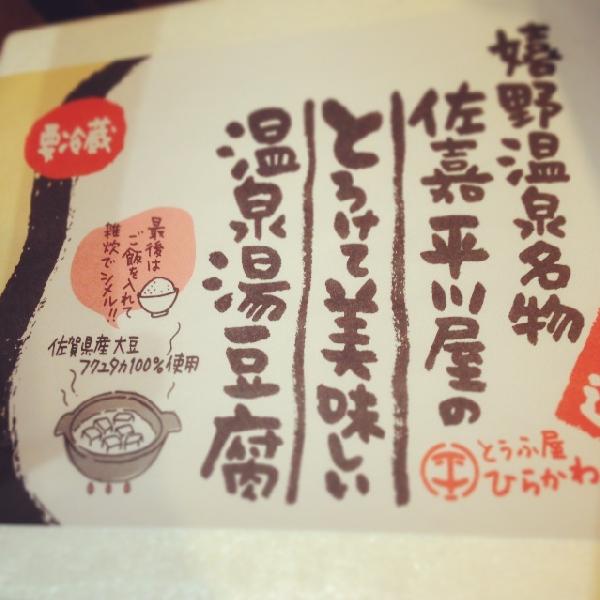 嬉野温泉名物
佐嘉平川屋の
とろけて美味しい
温泉湯豆腐
とうふ屋
ひらかわ
要冷蔵
最後は
ご飯を入れて
雑炊でシメル!!
佐賀県産大豆
フクユタカ100%使用